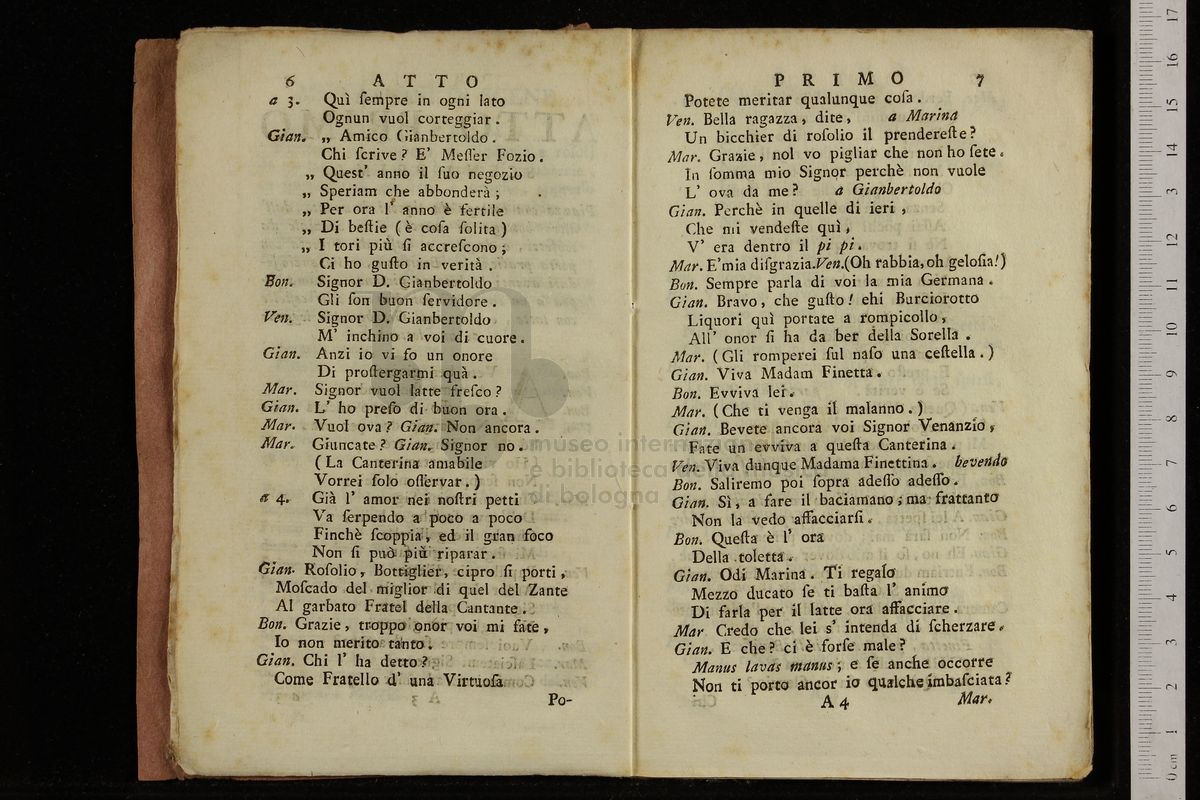 6 ATTO
a 3. Quì ſempre in ogni lato
Ognun vuol corteggiar.
Gian. „ Amico Gianbertoldo.
Chi ſcrive? E' Meſſer Fozio.
„ Queſt' anno il ſuo negozio
„ Speriam che abbonderà;
„ Per ora l' anno è fertile
„ Di beſtie (è coſa ſolita)
„ I tori più ſi accreſcono;
Ci ho guſto in verità.
Bon. Signor D. Gianbertoldo
Gli ſon buon ſervidore.
Ven. Signor D. Gianbertoldo
M' inchino a voi di cuore.
Gian. Anzi io vi fo un onore
Di proſtergarmi quà.
Mar. Signor vuol latte freſco?
Gian. L' ho preſo di buon ora.
Mar. Vuol ova? Gian. Non ancora.
Mar. Giuncate? Gian. Signor no.
(La Canterina amabile
Vorrei ſolo oſſervar.)
a 4. Già l' amor nei noſtri petti
Va ſerpendo a poco a poco
Finchè ſcoppia, ed il gran foco
Non ſi può più riparar.
Gian. Roſolio, Bottiglier, cipro ſi porti,
Moſcado del miglior di quel del Zante
Al garbato Fratel della Cantante.
Bon. Grazie, troppo onor voi mi fate,
Io non merito tanto.
Gian. Chi l' ha detto?
Come Fratello d' una Virtuoſa
Po-
PRIMO 7
Potete meritar qualunque coſa.
Ven. Bella ragazza, dite, a Marina
Un bicchier di roſolio il prendereſte?
Mar. Grazie, nol vo pigliar che non ho ſete.
In ſomma mio Signor perchè non vuole
L' ova da me? a Gianbertoldo
Gian. Perchè in quelle di ieri,
Che mi vendeſte quì,
V' era dentro il pi pi.
Mar. E'mia diſgrazia.Ven.(Oh rabbia, oh geloſia!)
Bon. Sempre parla di voi la mia Germana.
Gian. Bravo, che guſto! ehi Burciorotto
Liquori quì portate a rompicollo,
All' onor ſi ha da ber della Sorella.
Mar. (Gli romperei ſul naſo una ceſtella.)
Gian. Viva Madam Finetta.
Bon. Evviva lei.
Mar. (Che ti venga il malanno.)
Gian. Bevete ancora voi Signor Venanzio,
Fate un evviva a queſta Canterina.
Ven. Viva dunque Madama Finettina. bevendo
Bon. Saliremo poi ſopra adeſſo adeſſo.
Gian. Sì, a fare il baciamano; ma frattanto
Non la vedo affacciarſi.
Bon. Queſta è l' ora
Della toletta.
Gian. Odi Marina. Ti regalo
Mezzo ducato ſe ti baſta l' animo
Di farla per il latte ora affacciare.
Mar Credo che lei s' intenda di ſcherzare.
Gian. E che? ci è forſe male?
Manus lavas manus; e ſe anche occorre
Non ti porto ancor io qualche imbaſciata?
A 4 Mar.
museo internazionale
e biblioteca della musica
di bologna
0 cm 1 2 3 4 5 6 7 8 9 10 11 12 13 14 15 16 17